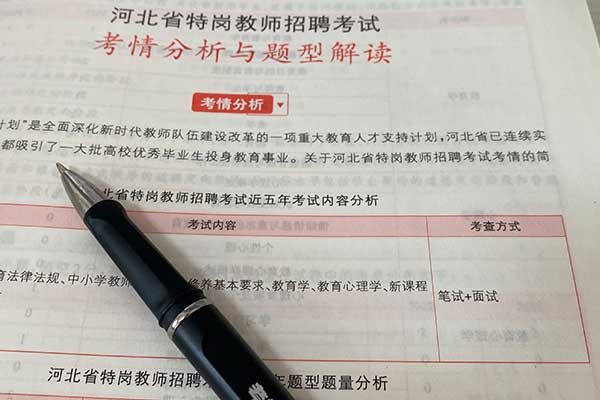 河北省特岗教师招聘考试
考情分析与题型解读
考情分析
计划”是全面深化新时代教师队伍建设改革的一项重大教育人才支持计划，河北省已连续实
都吸引了一大批高校优秀毕业生投身教育事业。关于河北省特岗教师招聘考试考情的简
北省特岗教师招聘考试近五年考试内容分析
考试内容 考查方式
育法律法规、中小学教师 修养基本要求、教育学、教育心理学、新课程
笔试+面试
河北省特岗教师招聘考 年题型题量分析